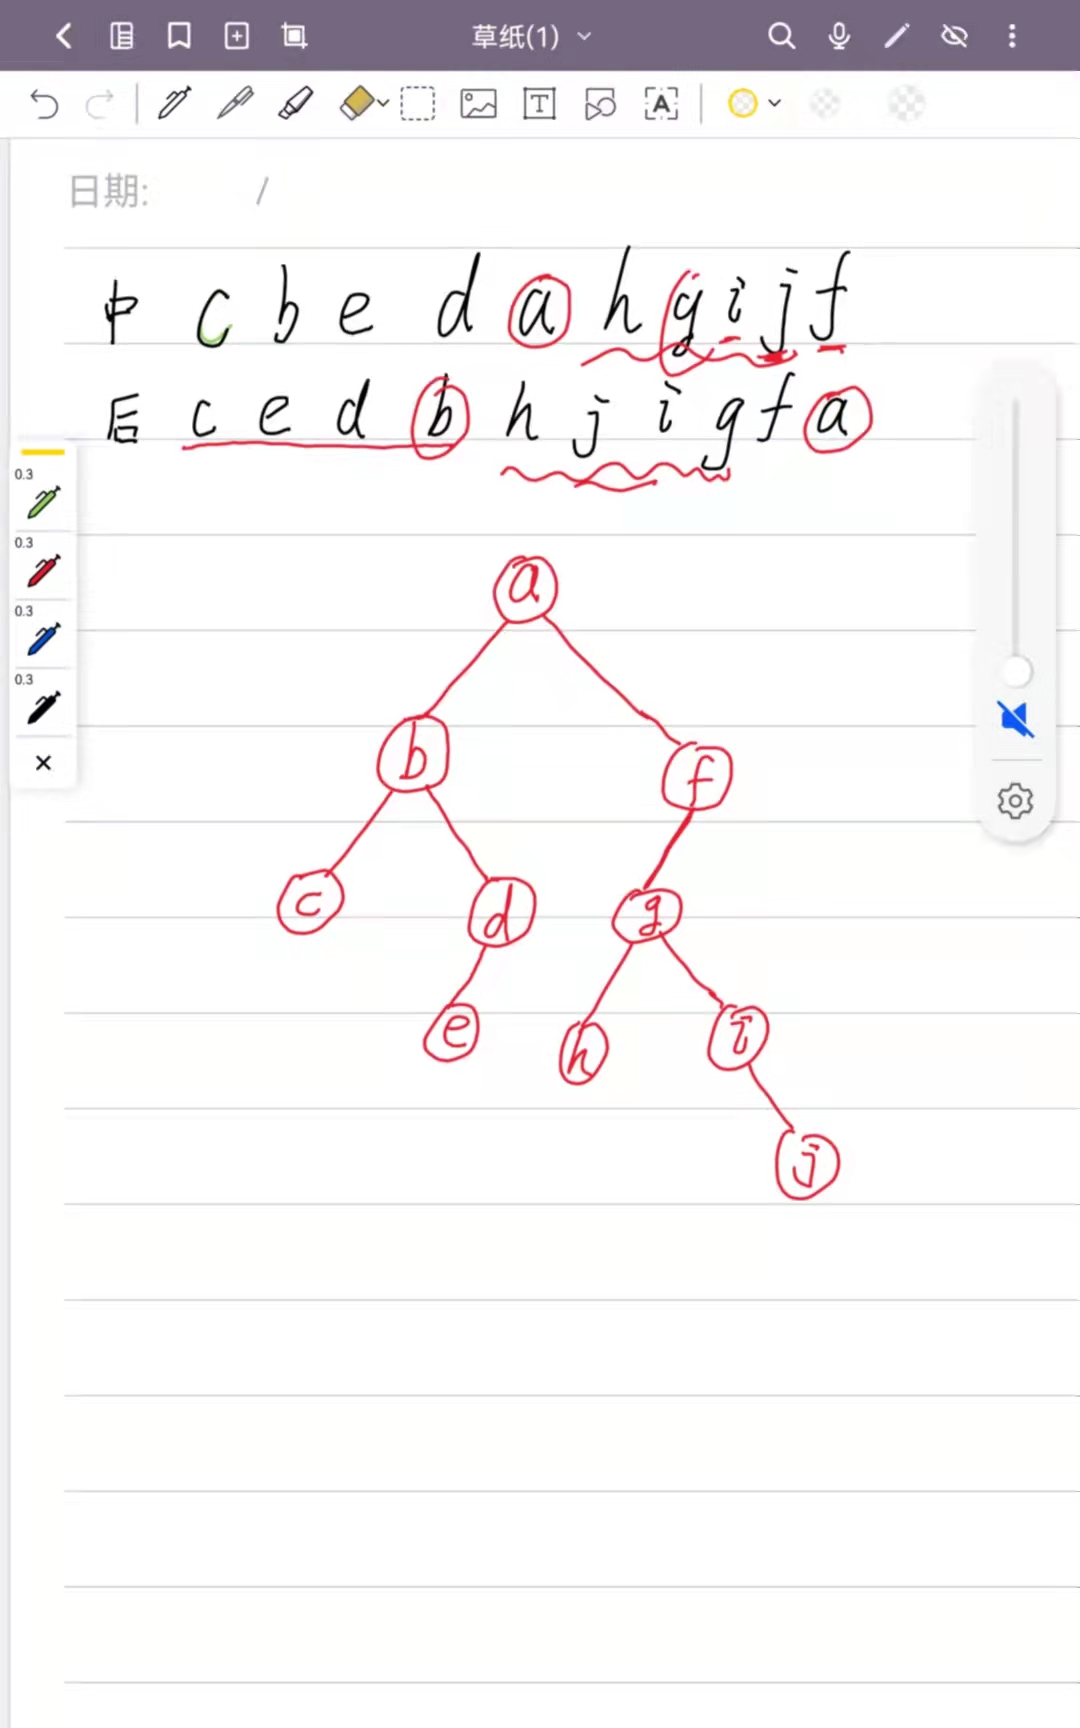 草纸(1)
日期: /
中 c b e d a h g i j f
后 c e d b h j i g f a
0.3
0.3
0.3
0.3
a
b f
c d g
e h i
j